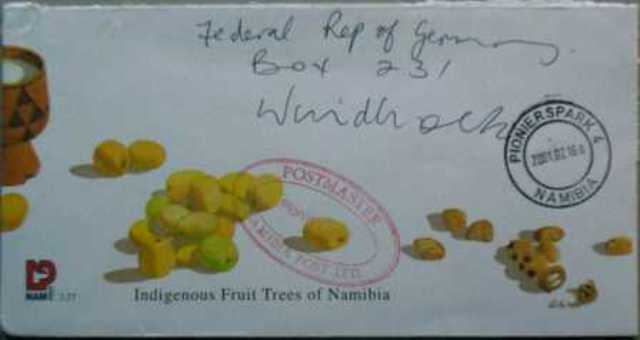 Federal Rep of Germany
Box 231
Windhoek
PIONIERSPARK 4
2001.02.16
NAMIBIA
POSTMASTER
POST LTD.
Indigenous Fruit Trees of Namibia